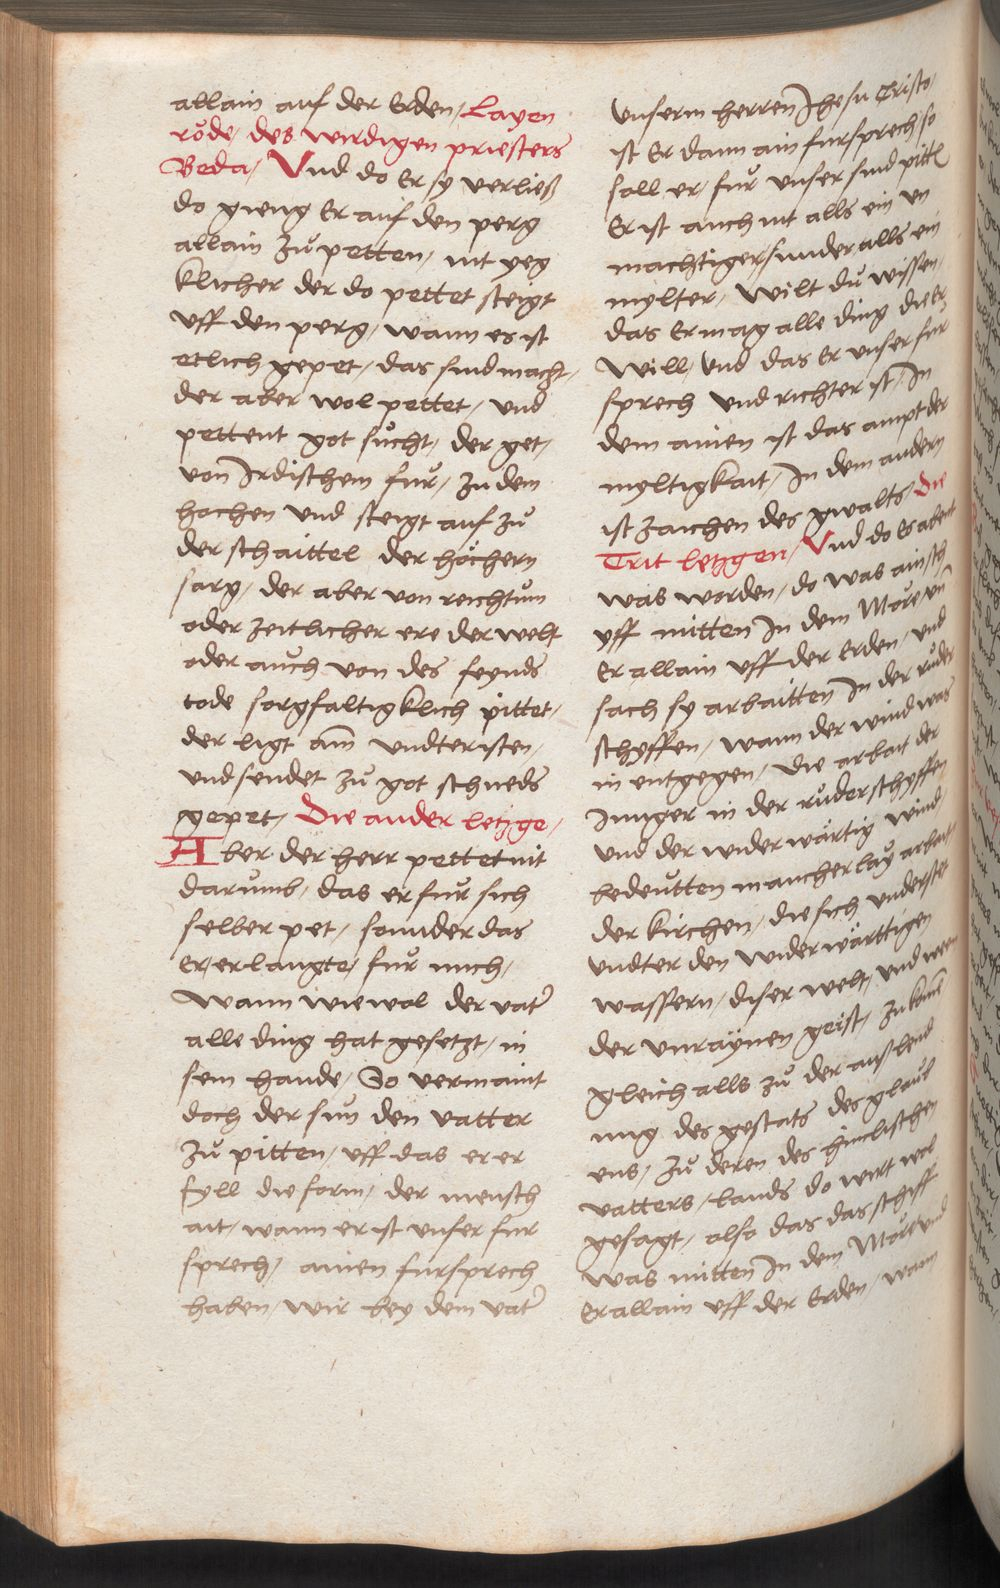 allain auf der Erden / Layen
röde / des wirdigen priesters
Beda / Vnd do Er sy verließ
do gieng Er auf den perg
allain zů petten / nit yeg
klicher der do pettet steigt
vff den perg / wann es ist
etlich gepet / das sind macht /
der aber wol pettet / vnd
pettent got sůcht / der get /
von Irdischem fůr / zu dem
hochen vnd steigt auf zů
der schaittel der höchern
sorg / der aber von reichtům
oder zeitlicher ere der welt
oder auch von des feynds
tode sorgfaltigklich pittet /
der ligt am̄ vndteristen /
vnd sendet zů got schneds
gepet / Die ander letzge /
Aber der herr pettet nit
darumb / das er fůr sich
selber pet / sonnder das
Er / erlangte / fůr mich /
Wann wie wol der vater
alle ding hat gesetzt / in
sein hande / So vermaint
doch der sun den vatter
zů pitten / vff das er er
fyll die form / der mensch
ait / wann er ist vnser fur
sprech / ainen fursprech
haben / wir bey dem vater
vnserm herren Jhesu Cristo /
ist Er dann ain fursprech so
soll er / fůr vnser sind pittē
Er ist auch nit alls ein vn
machtiger / sunder alls ein
mylter / Wilt dů wissen /
das Er mag alle ding die Er
will / vnd das Er vnser für
sprech vnd richter ist / In
dem ainen ist das ampt der
myltigkait / In dem andern
ist zaichen des gwalts / Die
Trit letzgen / Vnd do Es abent
was worden / do was ain sch
yff mitten In dem Möre vn̄
Er allain vff der Erden / vnd
sach sy arbaitten In der růder
schyffen / wann der wind was
in entgegen / Die arbait der
Iunger in der růderschyffen
vnd der widerwärtig wind
bedeutten mancherlay arbait
der kirchen / die sich vnderstet
vndter den widerwärttigen
wassern / diser welt / vnd ween
der vnraynen geist / zu kom̄ē
gleich alls zů der aussslend
ung des gestats des glaub
ens / zů deren des himlischen
vatters / lands do wirt wol
gesagt / also das das schiff
was mitten In dem Möre vnd
Er allain vff der Erden / wann